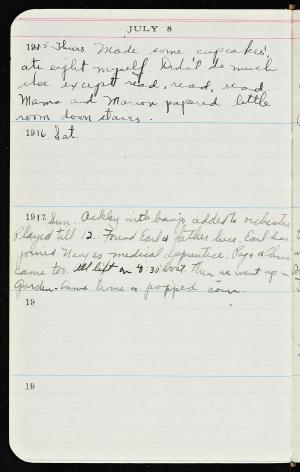 JULY 8
1915 Thurs. Made some cupcakes
ate eight myself. Didn't do much
else except read, read, read
Mama and Marion papered little
room down stairs.
1916 Sat.
1917 Sun. Ackley with banjo added to orchestra
Played till 12. Found Earl & father here. Earl has
joined Navy as medical apprentice.
came too. All left on 4:30 boat. Then we went up in
Garden. Came home & popped corn.
19
19